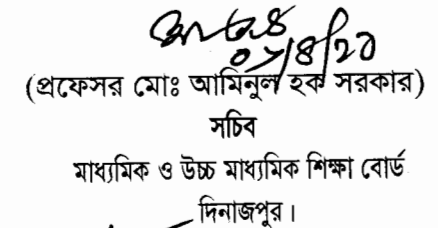 (প্রফেসর মোঃ আমিনুল হক সরকার)
সচিব
মাধ্যমিক ও উচ্চ মাধ্যমিক শিক্ষা বোর্ড
দিনাজপুর।